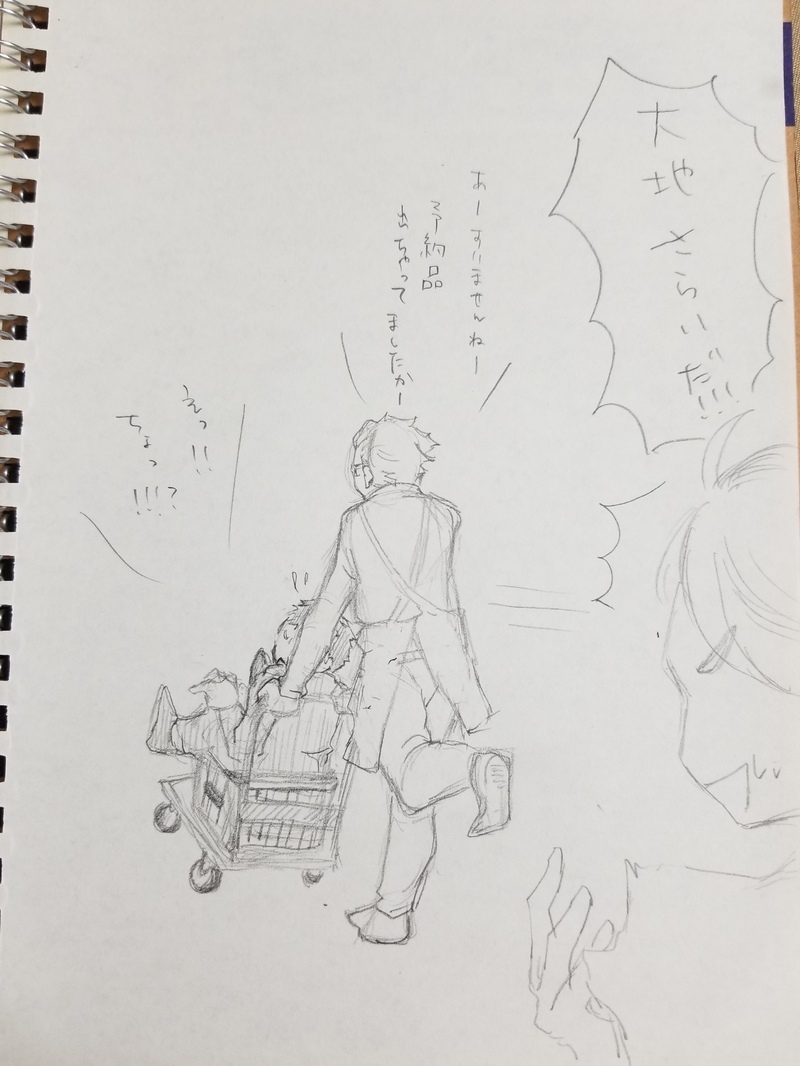 大地さらいだ!!!
あーすいませんねー
予約品
出ちゃってましたかー
えっ!!
ちょっ!!!?